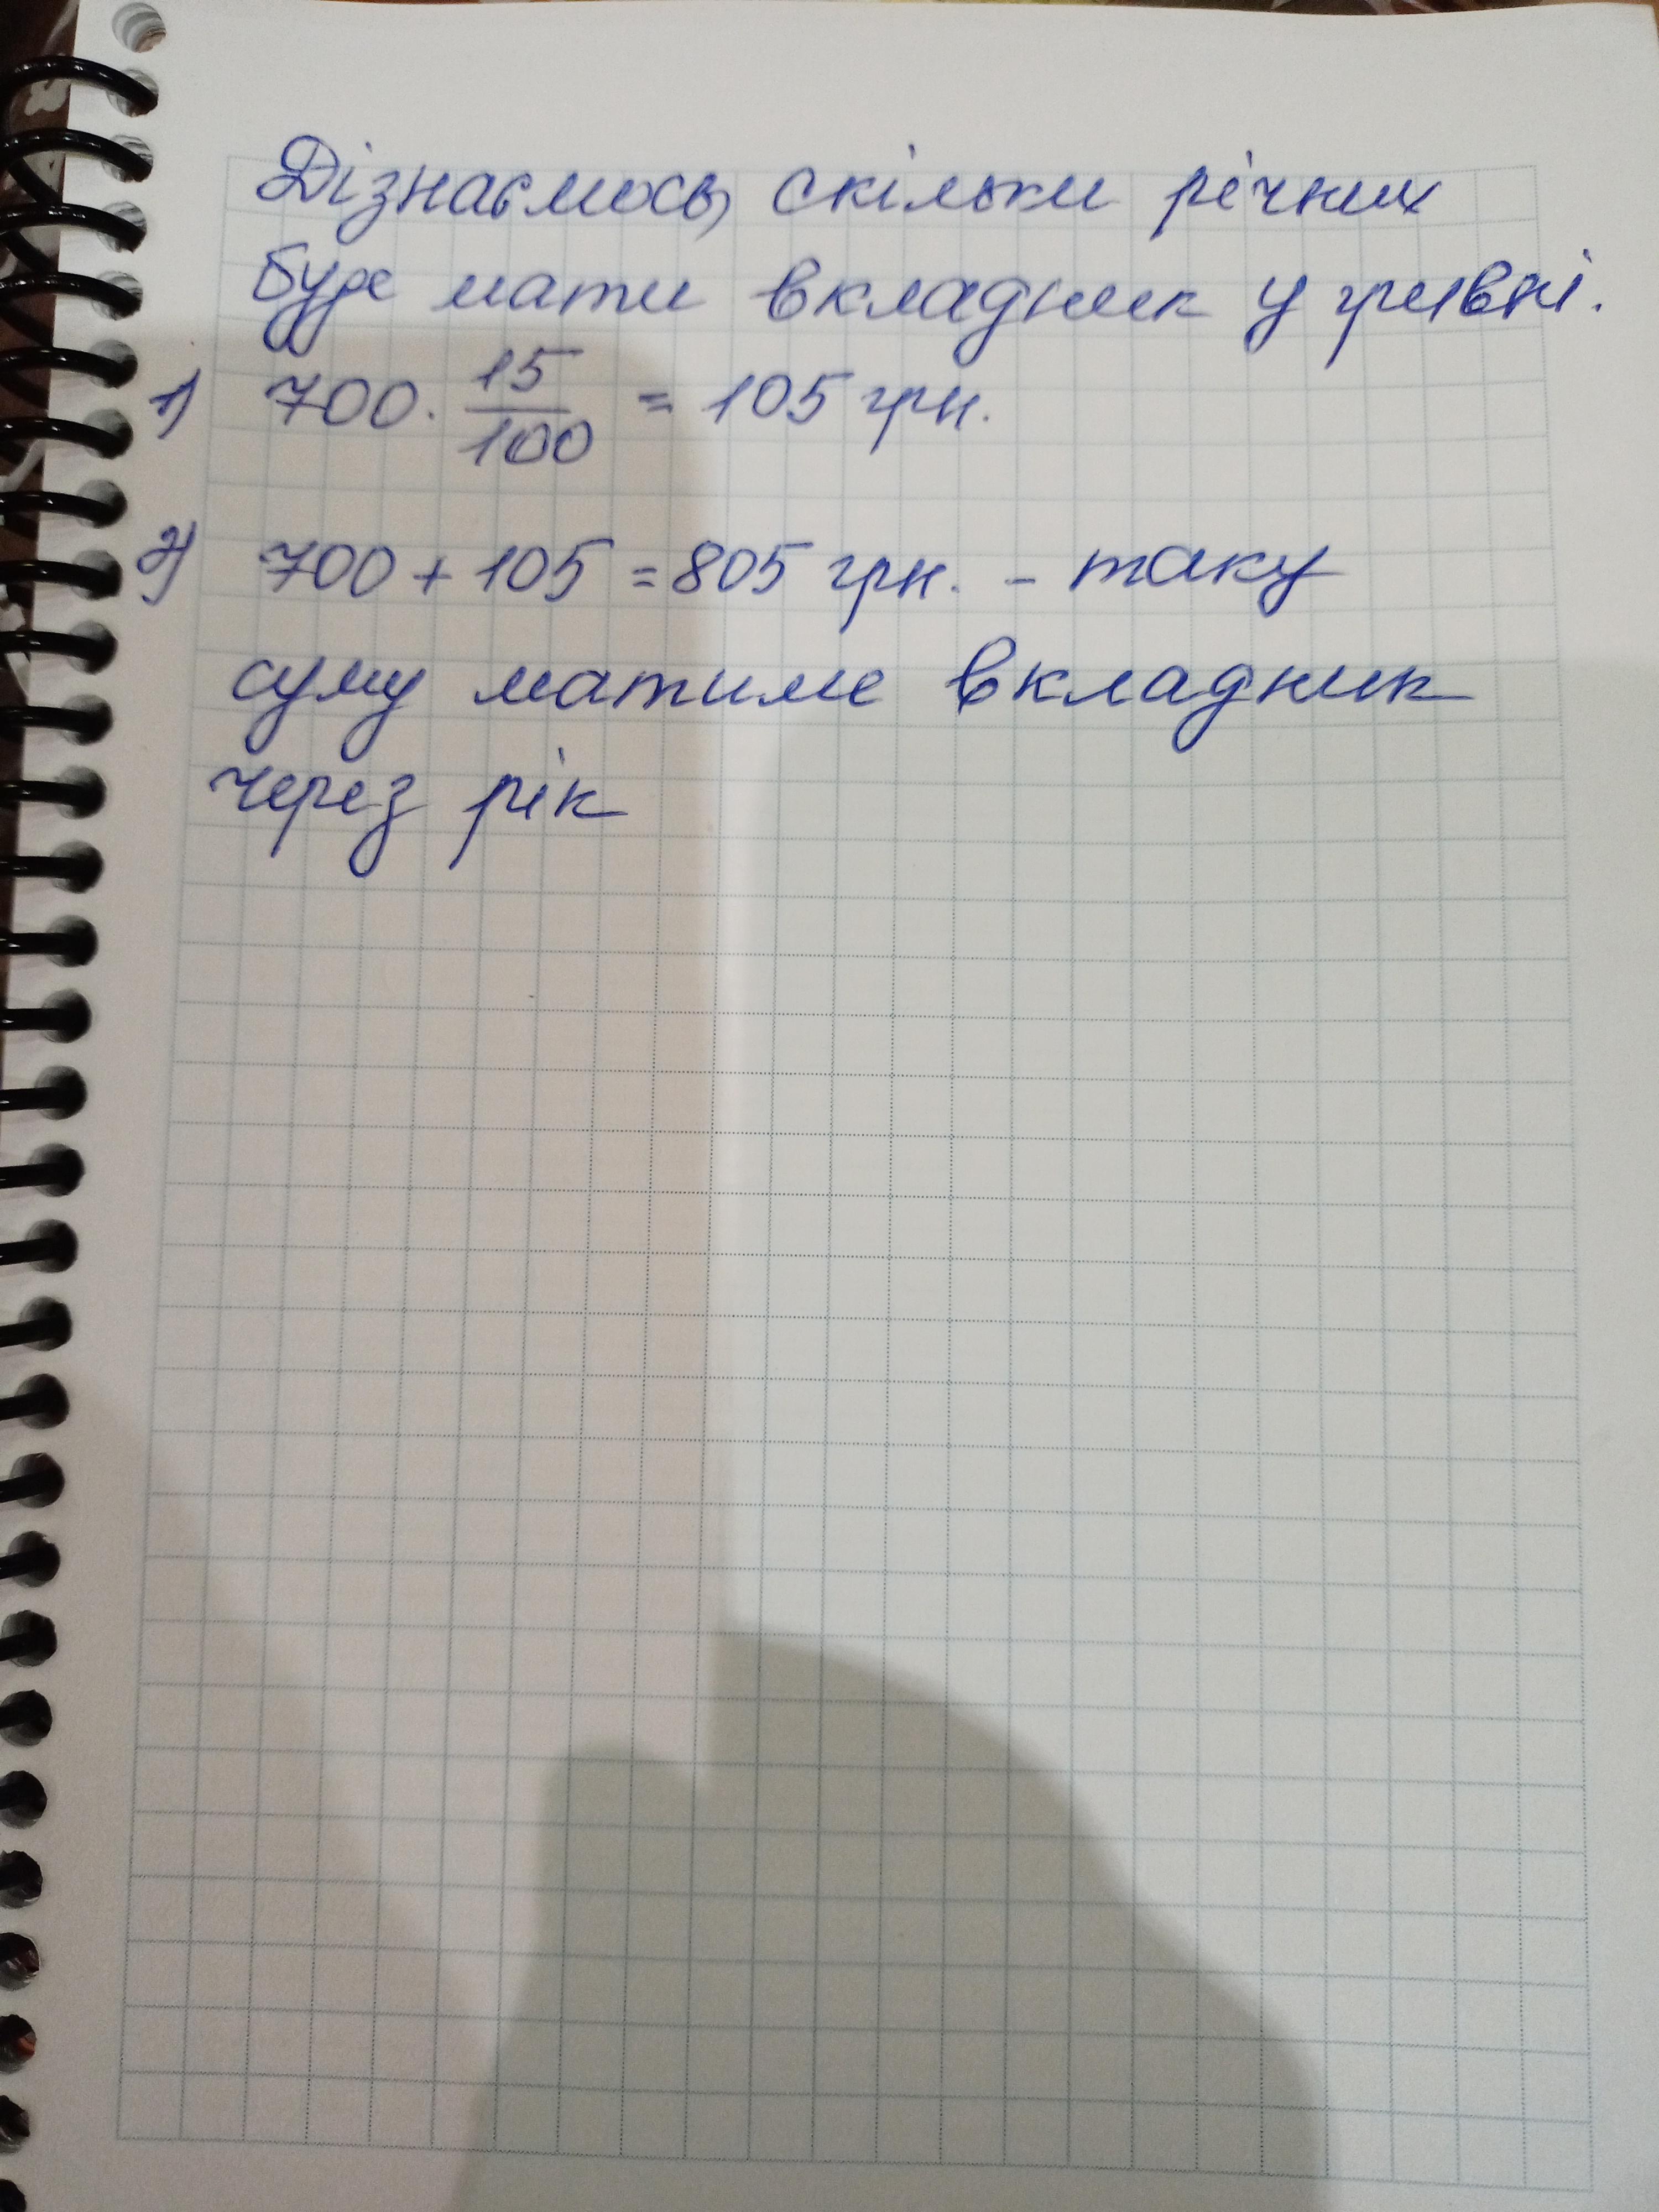 Дізнаємось, скільки річних
буде мати вкладник у гривні.
1) 700 · 15/100 = 105 грн.
2) 700 + 105 = 805 грн. - таку
суму матиме вкладник
через рік